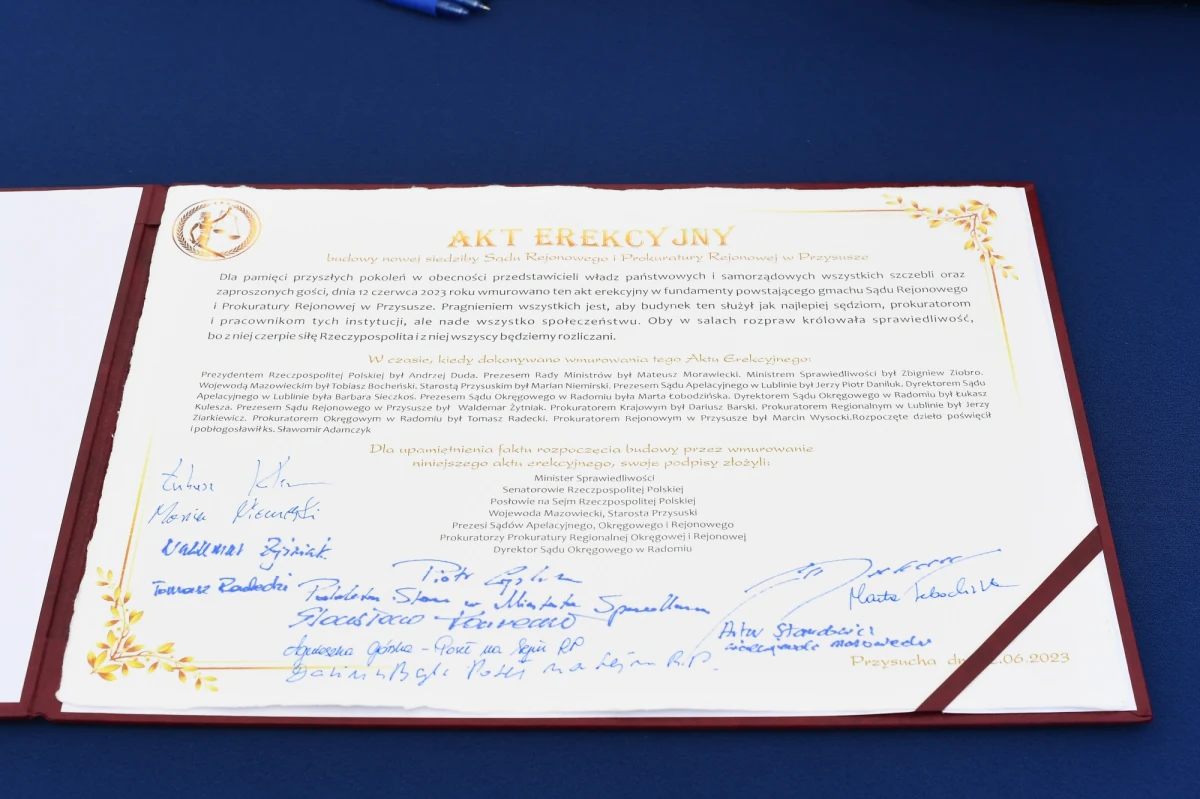 AKT EREKCYJNY
budowy nowej siedziby Sądu Rejonowego i Prokuratury Rejonowej w Przysusze
Dla pamięci przyszłych pokoleń w obecności przedstawicieli władz państwowych i samorządowych wszystkich szczebli oraz
zaproszonych gości, dnia 12 czerwca 2023 roku wmurowano ten akt erekcyjny w fundamenty powstającego gmachu Sądu Rejonowego
i Prokuratury Rejonowej w Przysusze. Pragnieniem wszystkich jest, aby budynek ten służył jak najlepiej sędziom, prokuratorom
i pracownikom tych instytucji, ale nade wszystko społeczeństwu. Oby w salach rozpraw królowała sprawiedliwość,
bo z niej czerpie siłę Rzeczypospolita i z niej wszyscy będziemy rozliczani.
W czasie, kiedy dokonywano wmurowania tego Aktu Erekcyjnego:
Prezydentem Rzeczpospolitej Polskiej był Andrzej Duda. Prezesem Rady Ministrów był Mateusz Morawiecki. Ministrem Sprawiedliwości był Zbigniew Ziobro.
Wojewodą Mazowieckim był Tobiasz Bocheński. Starostą Przysuskim był Marian Niemirski. Prezesem Sądu Apelacyjnego w Lublinie był Jerzy Piotr Daniluk. Dyrektorem Sądu
Apelacyjnego w Lublinie była Barbara Sieczkoś. Prezesem Sądu Okręgowego w Radomiu była Marta Łobodzińska. Dyrektorem Sądu Okręgowego w Radomiu był Łukasz
Kulesza. Prezesem Sądu Rejonowego w Przysusze był Waldemar Żytniak. Prokuratorem Krajowym był Dariusz Barski, Prokuratorem Regionalnym w Lublinie był Jerzy
Ziarkiewicz. Prokuratorem Okręgowym w Radomiu był Tomasz Radecki. Prokuratorem Rejonowym w Przysusze był Marcin Wysocki.Rozpoczęte dzieło poświęcił
i pobłogosławił ks. Sławomir Adamczyk
Dla upamiętnienia faktu rozpoczęcia budowy przez wmurowanie
niniejszego aktu erekcyjnego, swoje podpisy złożyli:
Minister Sprawiedliwości
Senatorowie Rzeczpospolitej Polskiej
Posłowie na Sejm Rzeczpospolitej Polskiej
Wojewoda Mazowiecki, Starosta Przysuski
Prezesi Sądów Apelacyjnego, Okręgowego i Rejonowego
Prokuratorzy Prokuratury Regionalnej Okręgowej i Rejonowej
Dyrektor Sądu Okręgowego w Radomiu
Łukasz
Waldemar Żytniak
Tomasz Radecki
Piotr
Marta
Artur
Agnieszka Górska - Poseł na Sejm RP
Poseł na Sejm R.P.
Przysucha .06.2023